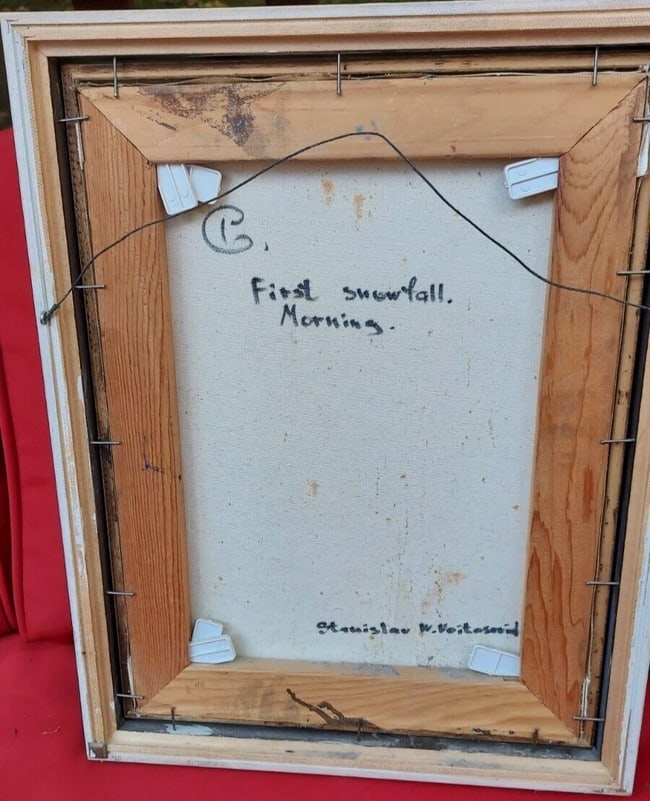 First snowfall.
Morning.
Stanislav